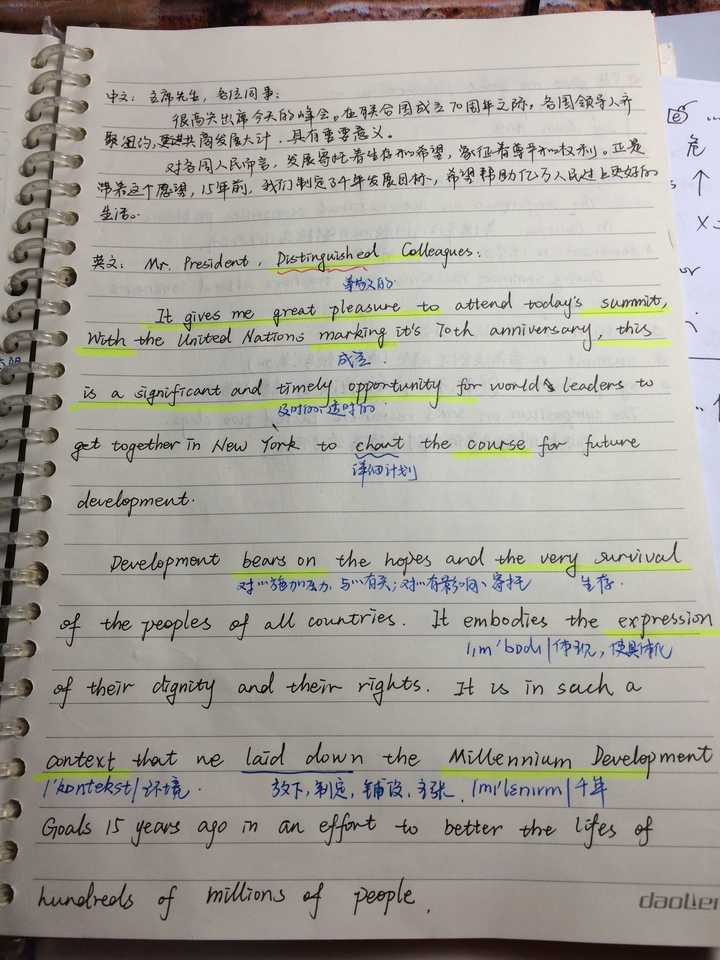 中文：主席先生，各位同事：
很高兴出席今天的峰会。在联合国成立70周年之际，各国领导人齐
聚纽约，共商发展大计，具有重要意义。
对各国人民而言，发展寄托着生存和希望，象征着尊严和权利。正是
带着这个愿望，15年前，我们制定了千年发展目标，希望帮助亿万人民过上更好的
生活。
英文：Mr. President, Distinguished Colleagues:
尊敬的
It gives me great pleasure to attend today's summit,
With the United Nations marking it's 70th anniversary, this
成立.
is a significant and timely opportunity for world's leaders to
及时的、适时的.
get together in New York to chart the course for future
详细计划
development.
Development bears on the hopes and the very survival
对…施加压力，与…有关；对…有影响、寄托 生存.
of the peoples of all countries. It embodies the expression
|ɪm'bɒdɪ|体现，使具体化
of their dignity and their rights. It is in such a
context that we laid down the Millennium Development
|'kɒntekst|环境. 放下，制定，铺设，主张. |mɪ'lenɪəm|千年
Goals 15 years ago in an effort to better the lifes of
hundreds of millions of people.
daolien
e ...
危
↑
X=
or